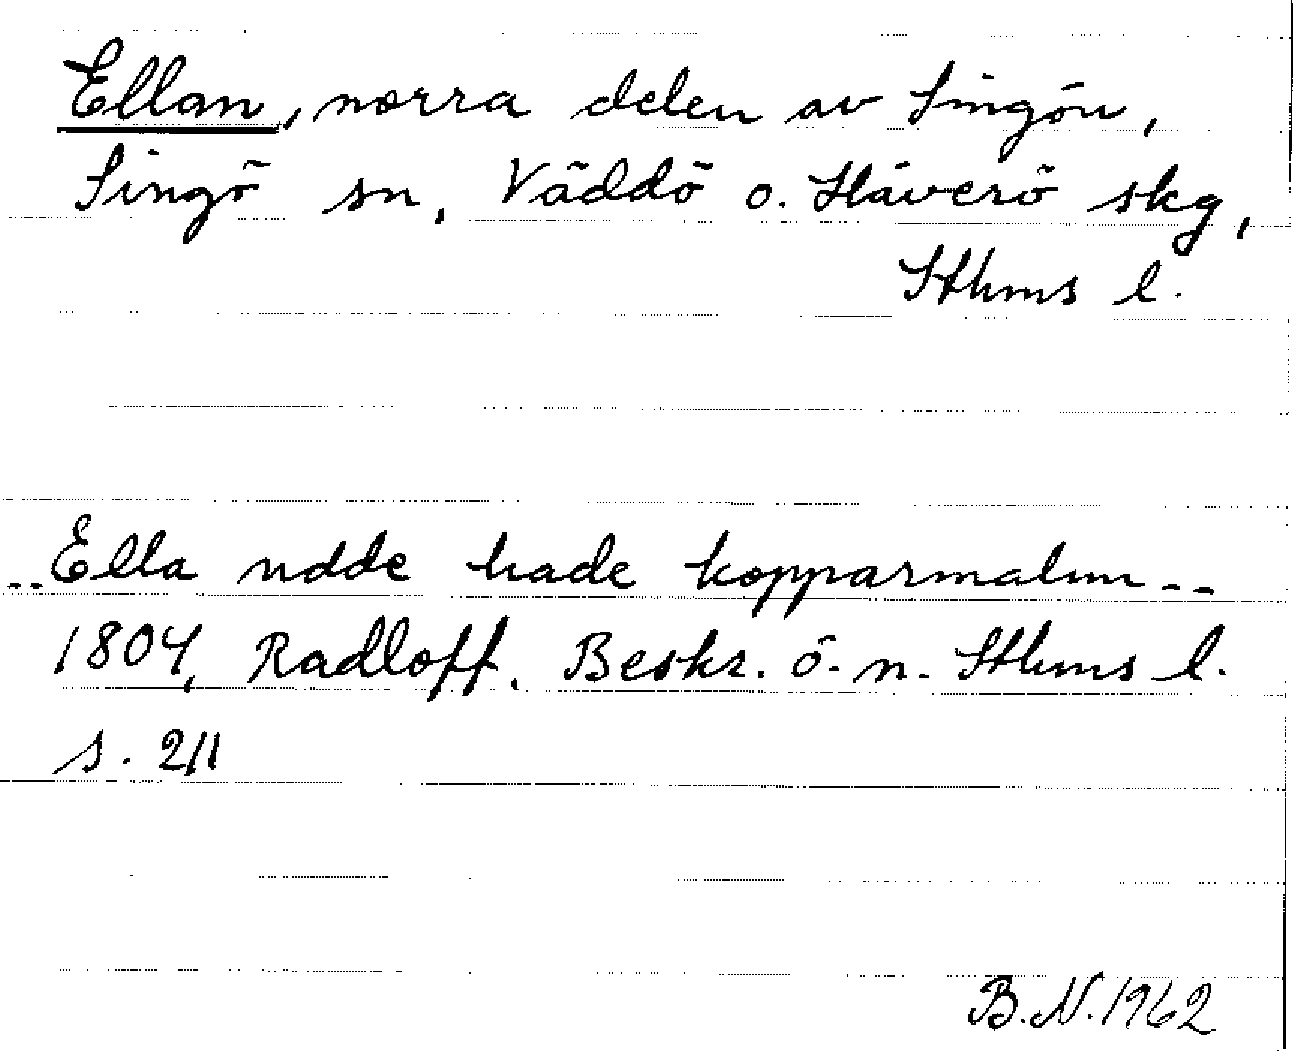 Ellan, norra delen av Singön,
Singö sn, Väddö o. Häverö skg,
Sthms l.
--Ella udde hade kopparmalm--
1804, Radloff. Beskr. ö. n. Sthms l.
s. 211
B.N. 1962